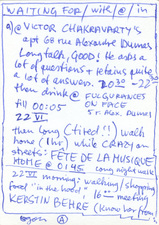 WAITING FOR / with / @ / in
a) @ VICTOR CHAKRAVARTY's
apt 68 rue Alexandre Dumas
Long talk, GOOD! He asks a
lot of questions & retains quite
a lot of answers. 20:30 - 22:30
then drink @ FULGURANCES
EN FACE
5 r. Alex. Dumas
till 00:05
22 VI
then long (tired!!) walk
home (1hr) while CRAZY on
streets: FÊTE DE LA MUSIQUE
HOME @ 0145 long night walk
22 VI morning: walking/shopping
food "in the hood" 16:00 meeting
KERSTIN BEHRE (know her from
A